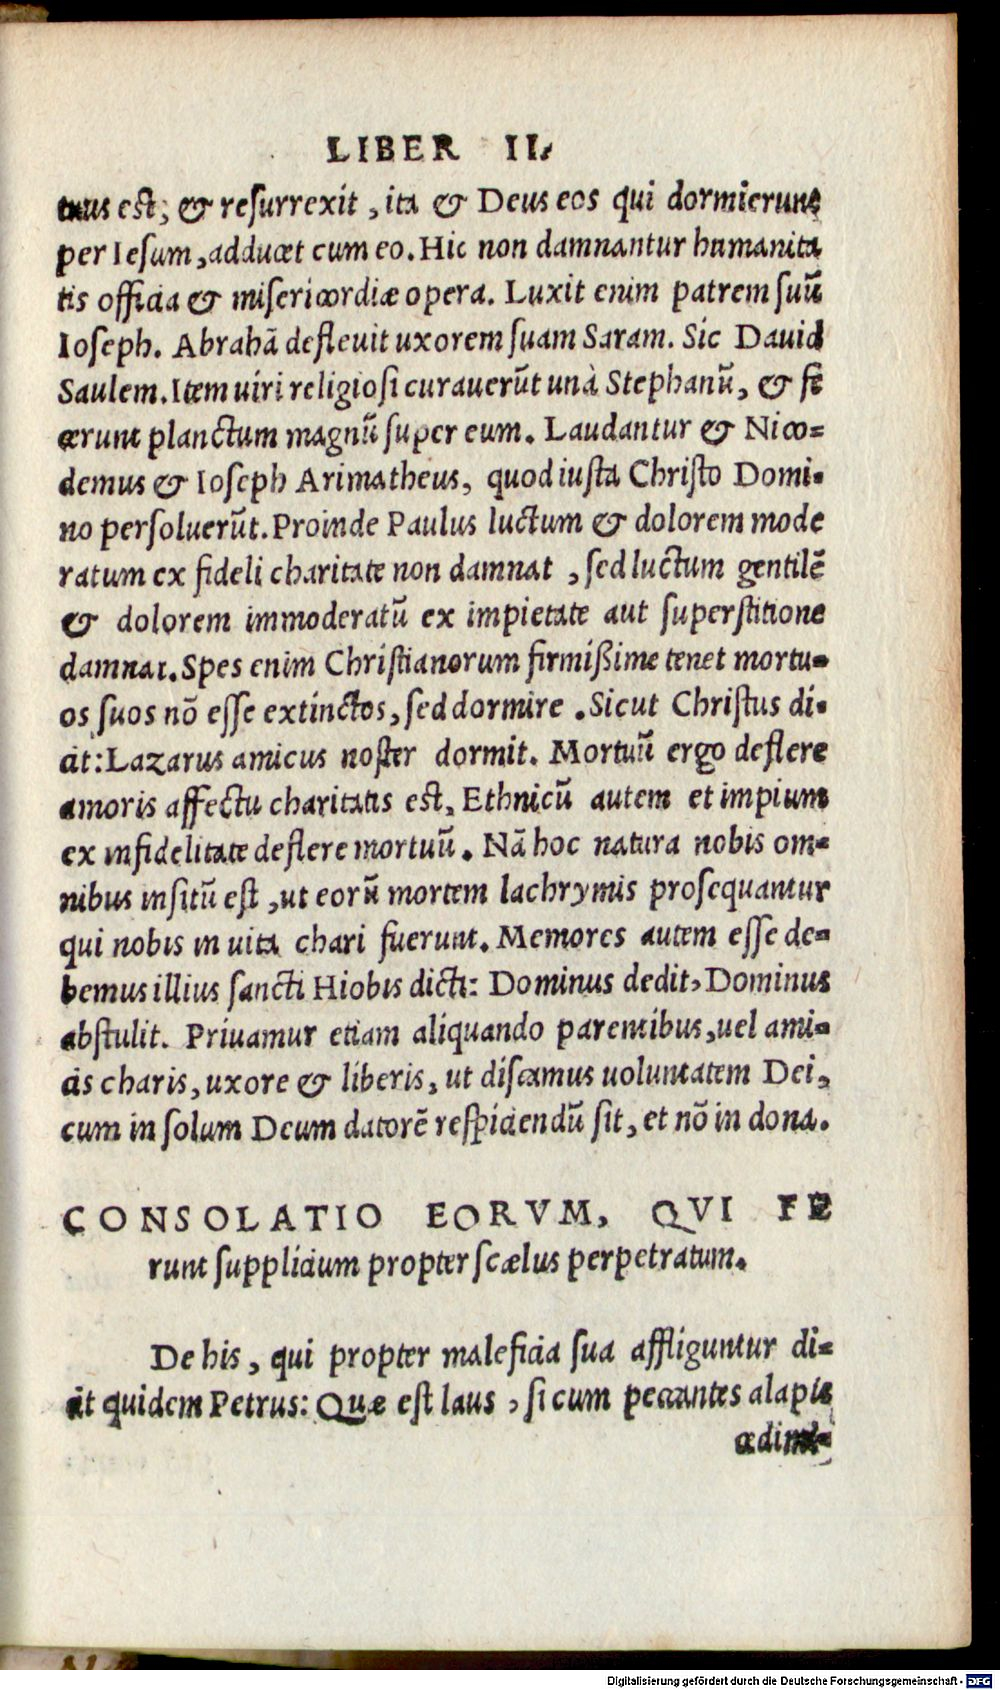 LIBER II.
tuus est; & resurrexit, ita & Deus eos qui dormierunt
per Iesum, adducet cum eo. Hic non damnantur humanita
tis officia & misericordiæ opera. Luxit enim patrem suũ
Ioseph. Abrahã defleuit uxorem suam Saram. Sic Dauid
Saulem. Item uiri religiosi curauerũt unà Stephanũ, & fe
cerunt planctum magnũ super eum. Laudantur & Nico=
demus & Ioseph Arimatheus, quod iusta Christo Domi=
no persoluerũt. Proinde Paulus luctum & dolorem mode
ratum ex fideli charitate non damnat, sed luctum gentilẽ
& dolorem immoderatũ ex impietate aut superstitione
damnat. Spes enim Christianorum firmißime tenet mortu=
os suos nõ esse extinctos, sed dormire. Sicut Christus di=
cit: Lazarus amicus noster dormit. Mortuũ ergo deflere
amoris affectu charitatis est, Ethnicũ autem et impium
ex infidelitate deflere mortuũ. Nã hoc natura nobis om=
nibus insitũ est, ut eorũ mortem lachrymis prosequantur
qui nobis in uita chari fuerunt. Memores autem esse de=
bemus illius sancti Hiobis dicti: Dominus dedit, Dominus
abstulit. Priuamur etiam aliquando parentibus, uel ami=
cis charis, uxore & liberis, ut discamus uoluntatem Dei,
cum in solum Deum datorẽ respiciendũ sit, et nõ in dona.
CONSOLATIO EORVM, QVI FE
runt supplicium propter scælus perpetratum.
De his, qui propter maleficia sua affliguntur di=
cit quidem Petrus: Quæ est laus, si cum peccantes alapis
cædimi=
Digitalisierung gefördert durch die Deutsche Forschungsgemeinschaft - DFG